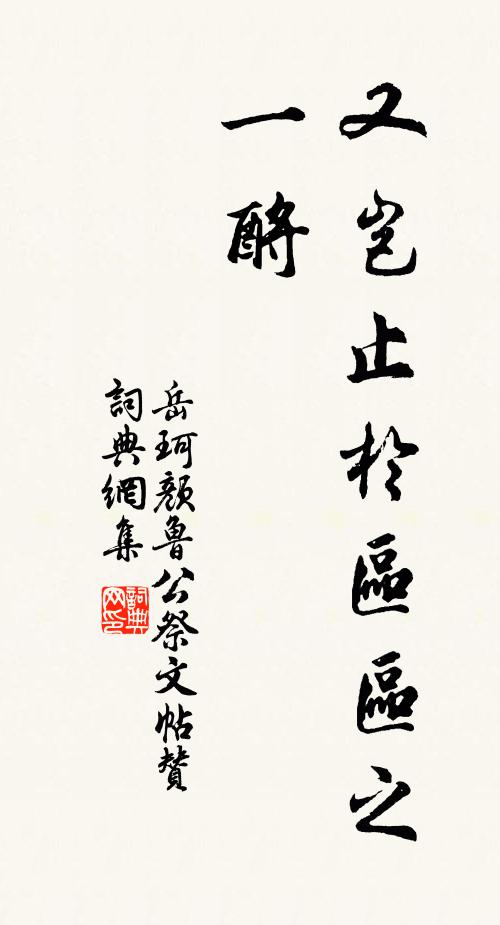 又岂止於區區之
一酹
岳珂顏魯公祭文帖贊
詞典網集
詞典
网印